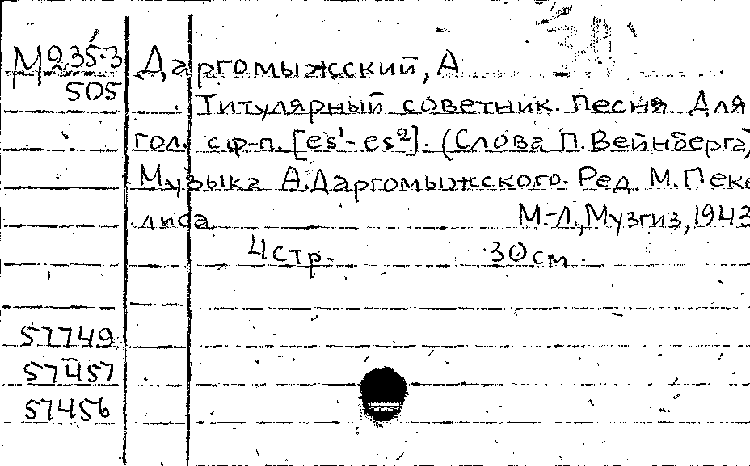 М 235-3 Даргомыжский, А
505 Титулярный советник. Песня Для
гол. с ф-п. [es¹-es²]. (Слова П. Вейнберга,
Музыка А. Даргомыжского. Ред. М. Пеке
лиса М-Л., Музгиз, 1943
4 стр. 30 см.
57749
57457
57456